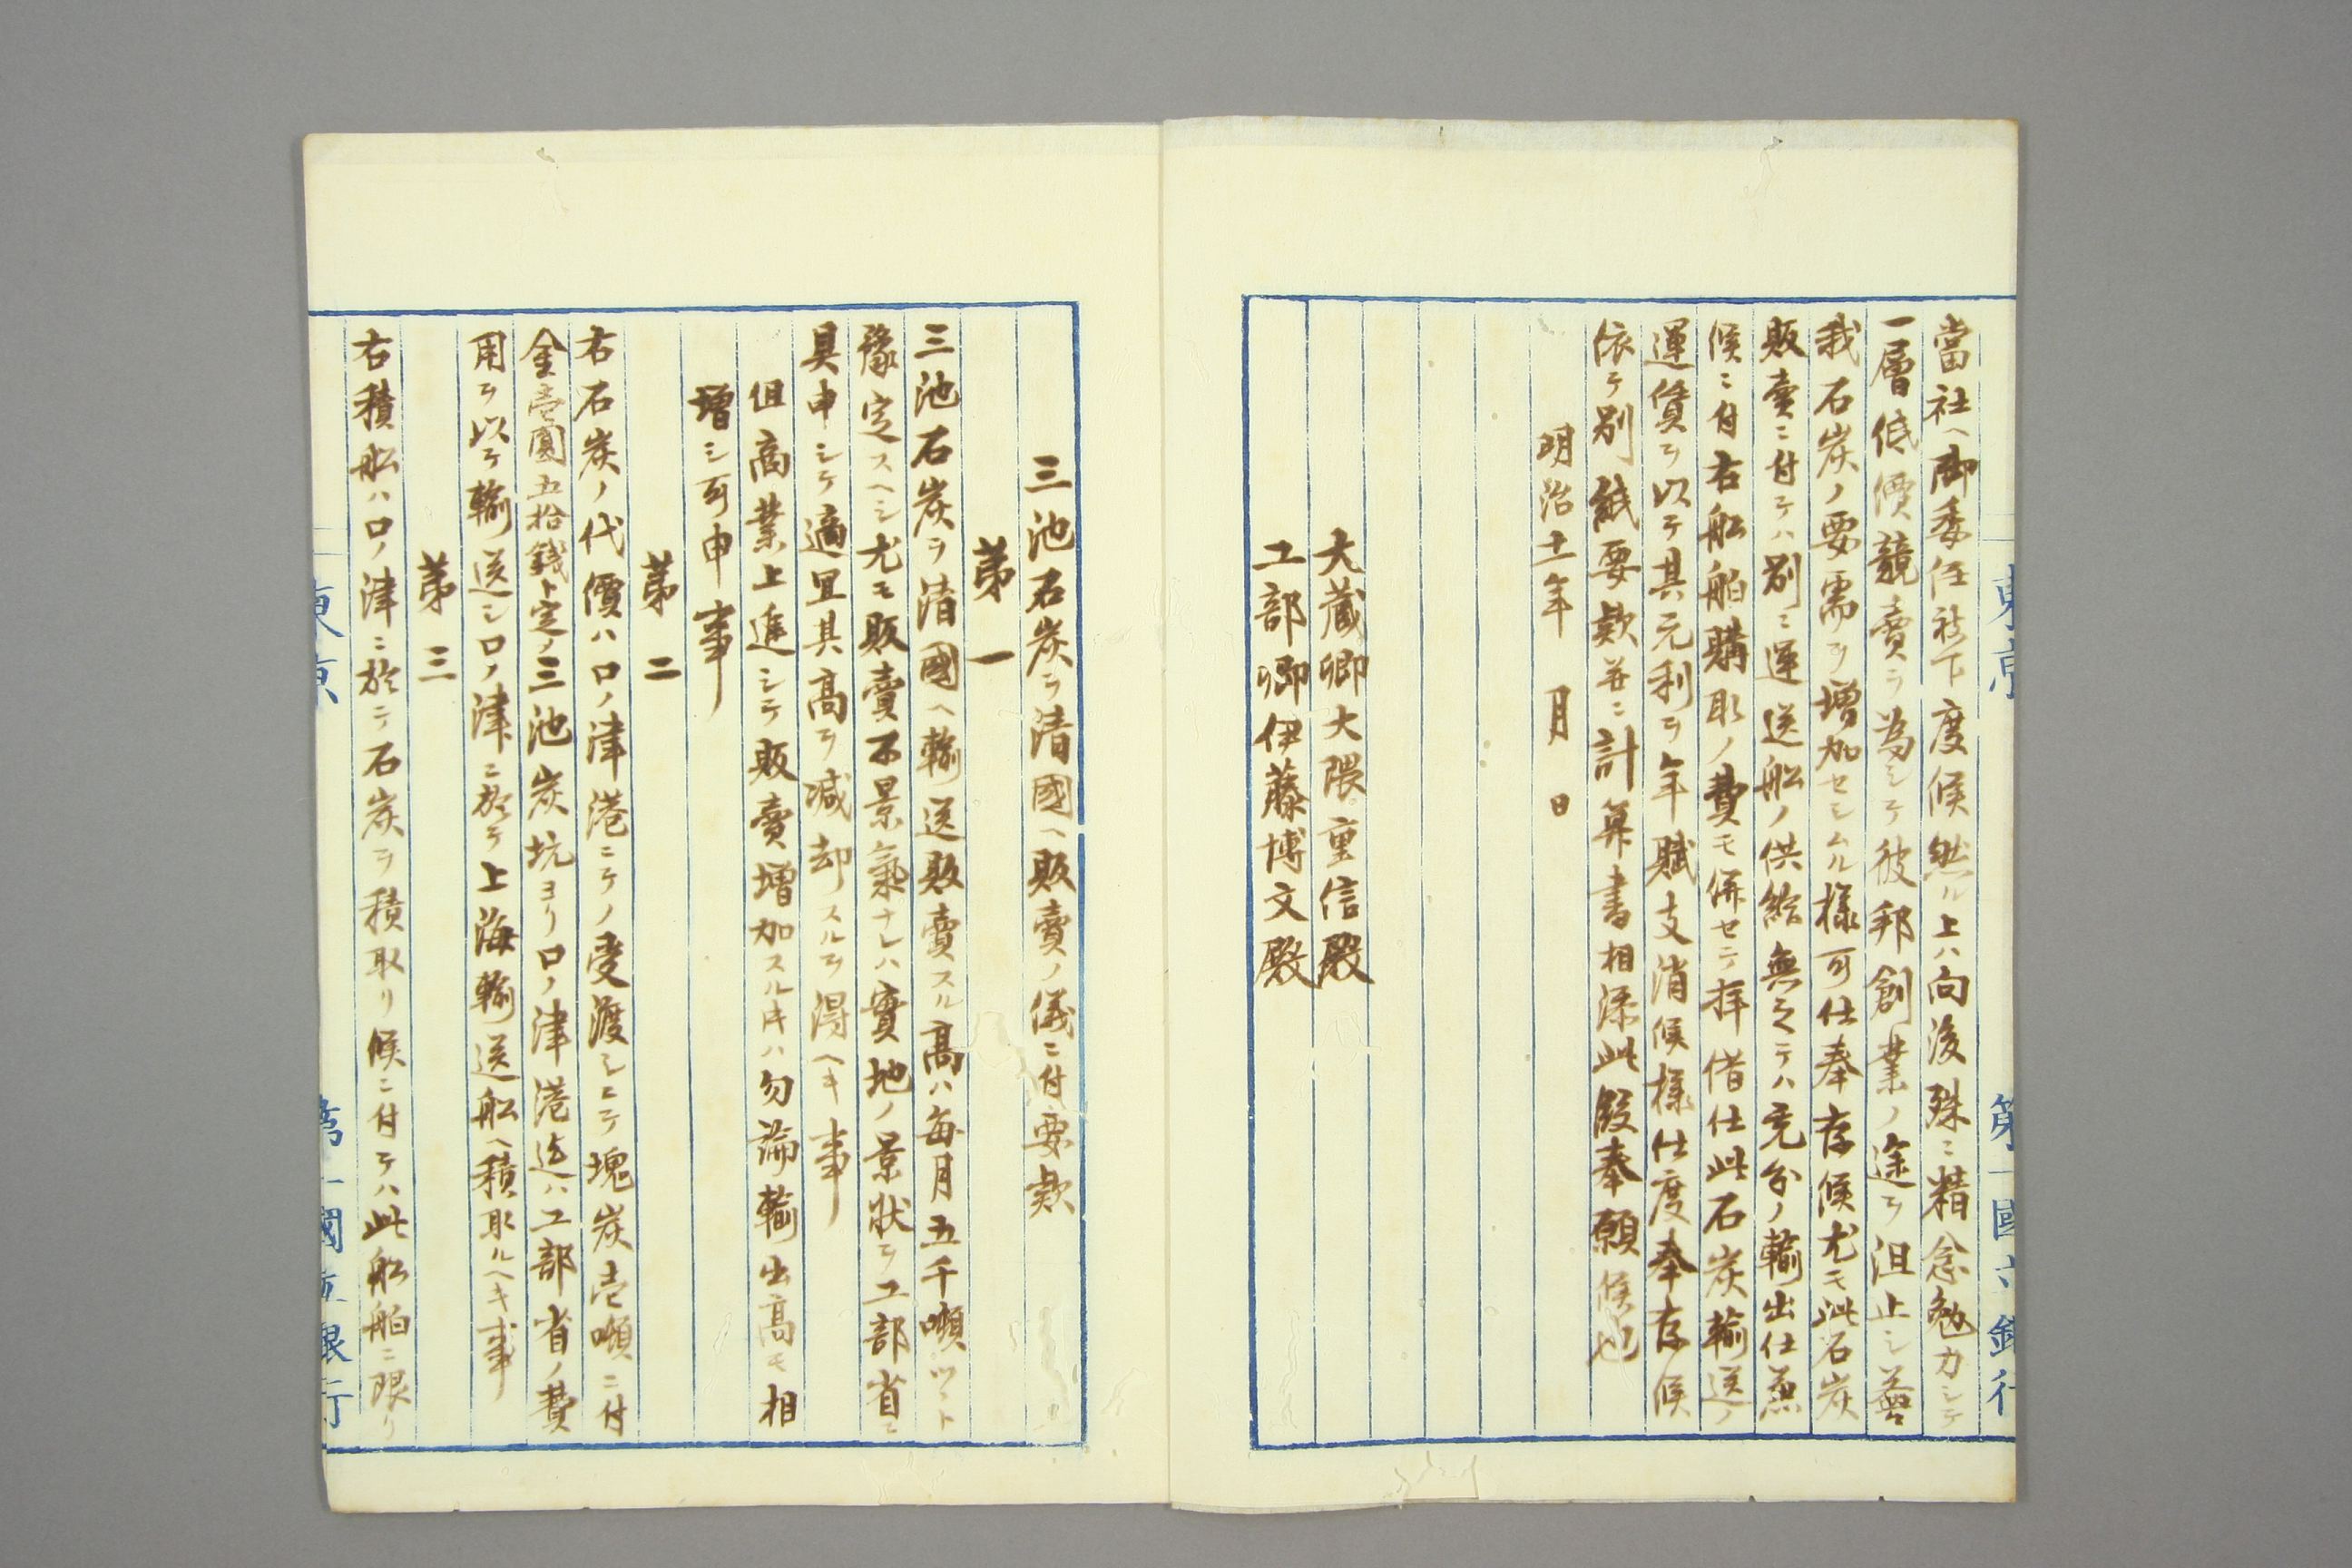 當社ヘ御委任被下度候然ル上ハ向後殊ニ精念勉力シテ
一層低價競賣ヲ為シテ彼邦創業ノ途ヲ沮止シ益
我石炭ノ要需ヲ増加セシムル様可仕奉存候尤モ此石炭
販賣ニ付テハ別ニ運送船ノ供給無之テハ充分ノ輸出仕兼
候ニ付右船舶購取ノ費モ併セテ拝借仕此石炭輸送ノ
運賃ヲ以テ其元利ヲ年賦支消候様仕度奉存候
依テ別紙要款並ニ計算書相添此段奉願候也
明治十一年 月 日
大蔵卿大隈重信殿
工部卿伊藤博文殿
東京 第一國立銀行
三池石炭ヲ清國ヘ販賣ノ儀ニ付要款
第一
三池石炭ヲ清國ヘ輸送販賣スル高ハ毎月五千噸ツヽト
豫定スヘシ尤モ販賣不景氣ナレハ實地ノ景状ヲ工部省ニ
具申シテ適冝其高ヲ減却スルヲ得ヘキ事
但商業上進シテ販賣増加スルキハ勿論輸出高モ相
増シ可申事
第二
右石炭ノ代價ハ口ノ津港ニテノ受渡シニテ塊炭壱噸ニ付
金壱圓五拾錢ト定ノ三池炭坑ヨリ口ノ津港迄ハ工部省ノ費
用ヲ以テ輸送シ口ノ津ニ於テ上海輸送船ヘ積取ルヘキ事
第三
右積船ハ口ノ津ニ於テ石炭ヲ積取リ候ニ付テハ此船舶ニ限リ
東京 第一國立銀行